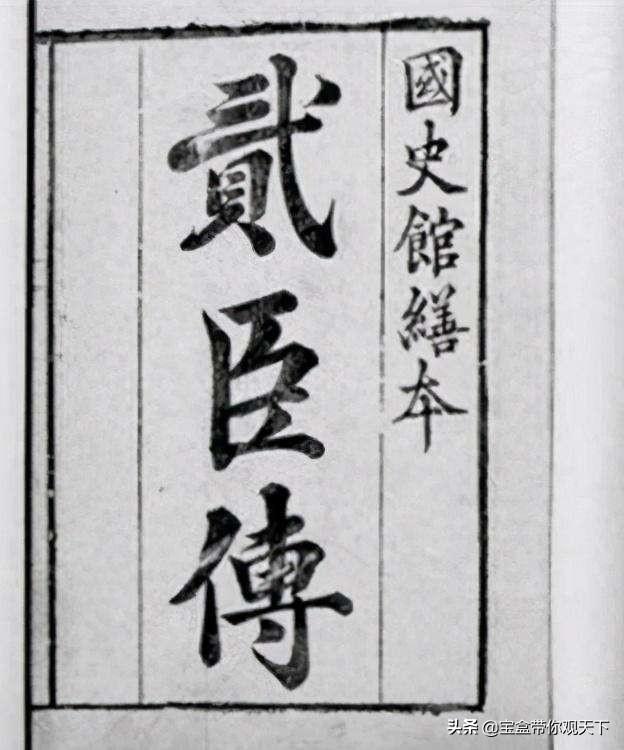 國史館繕本
貳臣傳
头条 @宝盒带你观天下